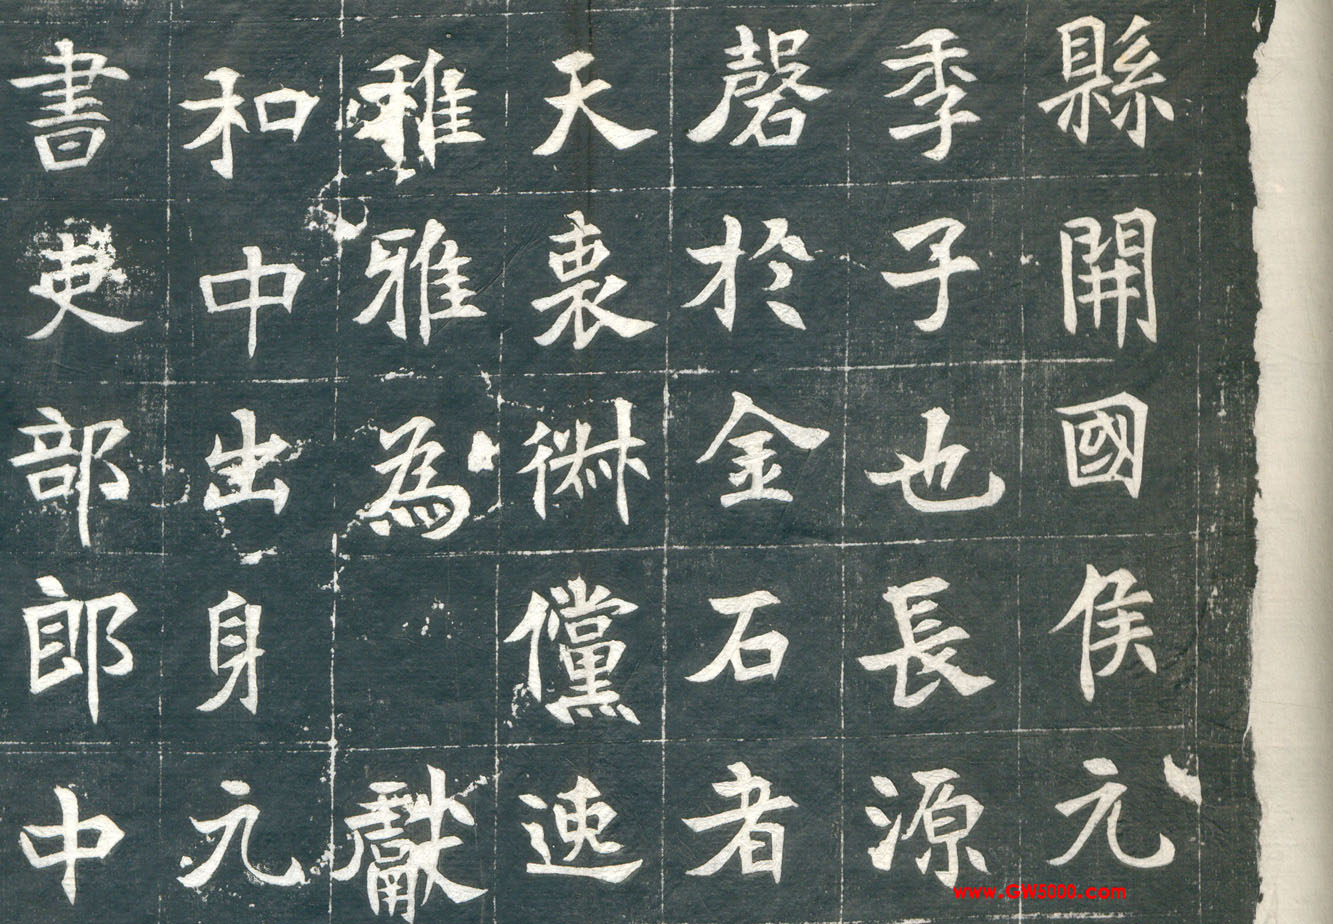 縣開國侯元
季子也長源
磬於金石者
天衷俶儻速
稚雅為獻
和中出身元
書吏部郎中
www.GW5000.com